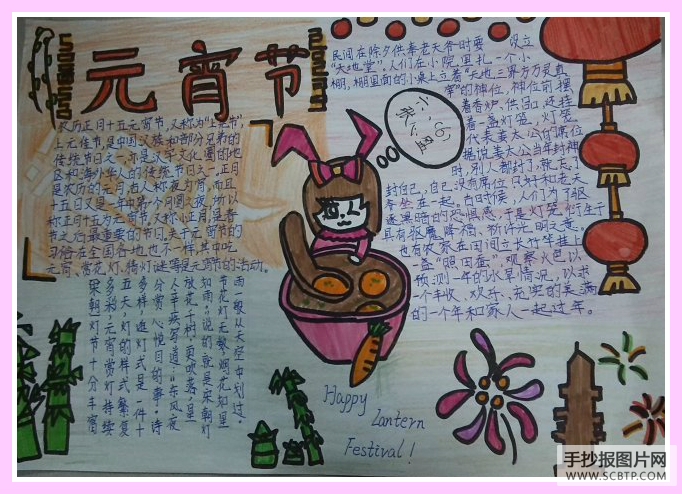 元宵节
农历正月十五元宵节,又称为"上元节",
上元佳节,是中国汉族和部分兄弟的
传统节日之一,亦是汉字文化圈的地
区和海外华人的传统节日之一。正月
是农历的元月,古人称夜为宵,而且
十五日又是一年中第一个月圆之夜,所以
称正月十五为元宵节。又称小正月,是春
节之后最重要的节日。关于元宵节的
习俗在全国各地也不一样,其中吃
元宵、赏花灯、猜灯谜等是元宵节的活动。
民间在除夕供奉老天爷时要 设立
"天地堂",人们在小院里扎一个小
棚,棚里面的小桌上立着"天地三界万灵真
宰"的神位,神位前摆
着香炉、供品,还挂
着一盏灯笼。灯笼
代表姜太公的席位
据说姜太公当年封神
时,别人都封了,就忘了
封自己,自己没有席位,只好和老天
爷坐在一起。古时候,人们为了驱
逐黑暗的恐惧感,于是灯笼衍生于
具有驱魔降福、祈许光明之意。
也有农家在田间立长竹竿挂上
一盏"照田蚕",观察火色以
预测一年的水旱情况,以求
一个丰收、欢乐、充实的美满
的一个年和家人一起过年。
雨一般从天空中划过。
节花灯无数,烟花如星
如雨"说的就是宋朝灯
放花千树,更吹落,星
人辛弃疾写道:"东风夜
分赏心悦目的事。诗
多样,逛灯式是一件十
五天,灯的样式繁复
多彩,元宵赏灯持续
宋朝灯节十分丰富
Happy
Lantern
Festival!
手抄报图片网
WWW.SCBTP.COM